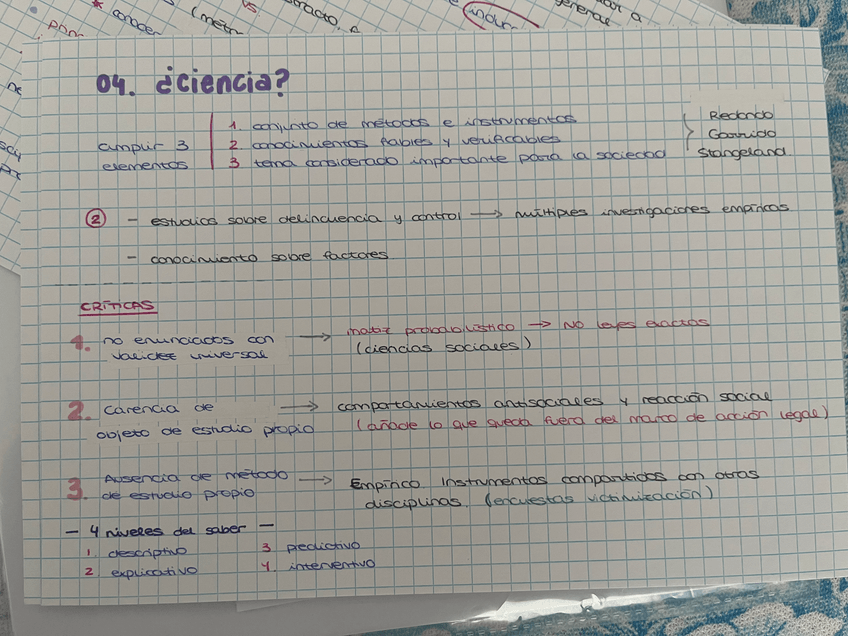 * conocer
(metn
vs
tracto, e
indiv
generac
or a
04. ¿ciencia?
cumplir 3
elementos
1. conjunto de métodos e instrumentos
2. conocimientos fiables y verificables
3 tema considerado importante para la sociedad
Redondo
Garrido
Stangeland
② - estudios sobre delincuencia y control → múltiples investigaciones empíricas
- conocimiento sobre factores
CRÍTICAS
1. no enunciados con
validez universal
→ matiz probabilístico → No leyes exactas
(ciencias sociales)
2. Carencia de
objeto de estudio propio
→ comportamientos antisociales y reacción social
(añade lo que queda fuera del marco de acción legal)
3. Ausencia de método
de estudio propio
→ Empírico. Instrumentos compartidos con otras
disciplinas. (encuestas victimización)
- 4 niveles del saber -
1. descriptivo
2 explicativo
3 predictivo
4 interventivo